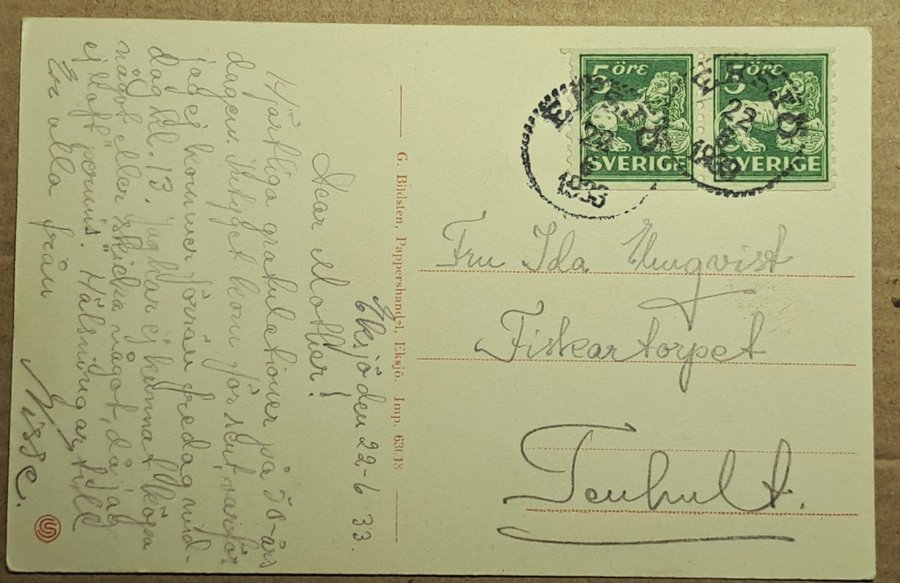 Eksjö den 22-6 33.
Kär Mottar!
Hjärtliga gratulationer på 50-års
dagen. Helijget kom för sent, varför
jag ej kommer förrän fredag mid-
dag kl. 13. Jag har ej kunnat köpa
något eller skicka något, då jag
ej haft permis. Hälsningar till
Er alla från
Nisse.
G. Bildsten, Pappershandel, Eksjö. Imp. 63018
5 ÖRE 5 ÖRE
SVERIGE SVERIGE
EKSJÖ
22
6
1933
EKSJÖ
22
6
1933
Fru Ida Elmqvist
Fiskartorpet
Tenhult.